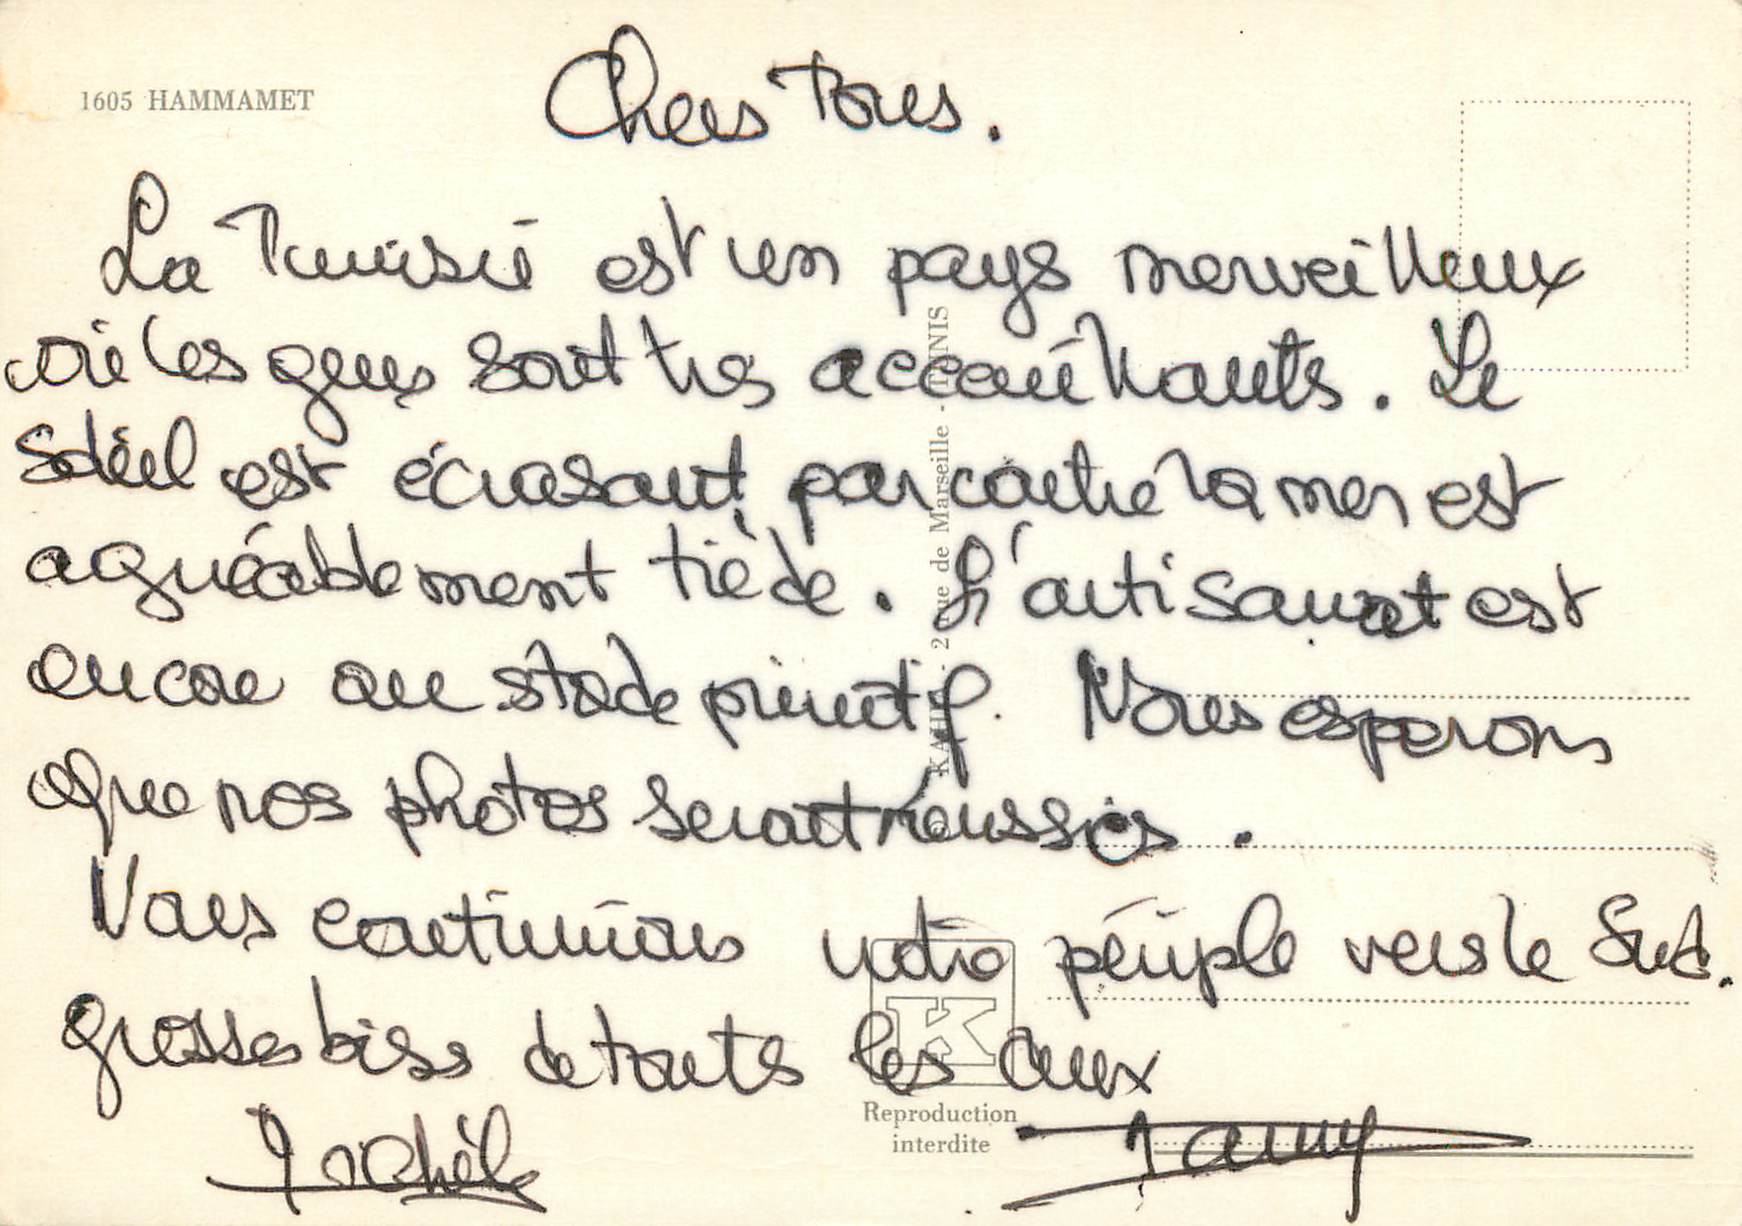 1605 HAMMAMET
Chers Tous.
La Tunisie est un pays merveilleux
où les gens sont très acceuillants. Le
Soleil est écrasant par contre la mer est
aguéablement tiède. L'artisanat est
encore au stade primitif. Nous esperons
que nos photos seront réussies.
Nous continuons notre périple vers le Sud.
grosses bises de touts les deux
KAHIA - 2 rue de Marseille - TUNIS
Reproduction
interdite
K